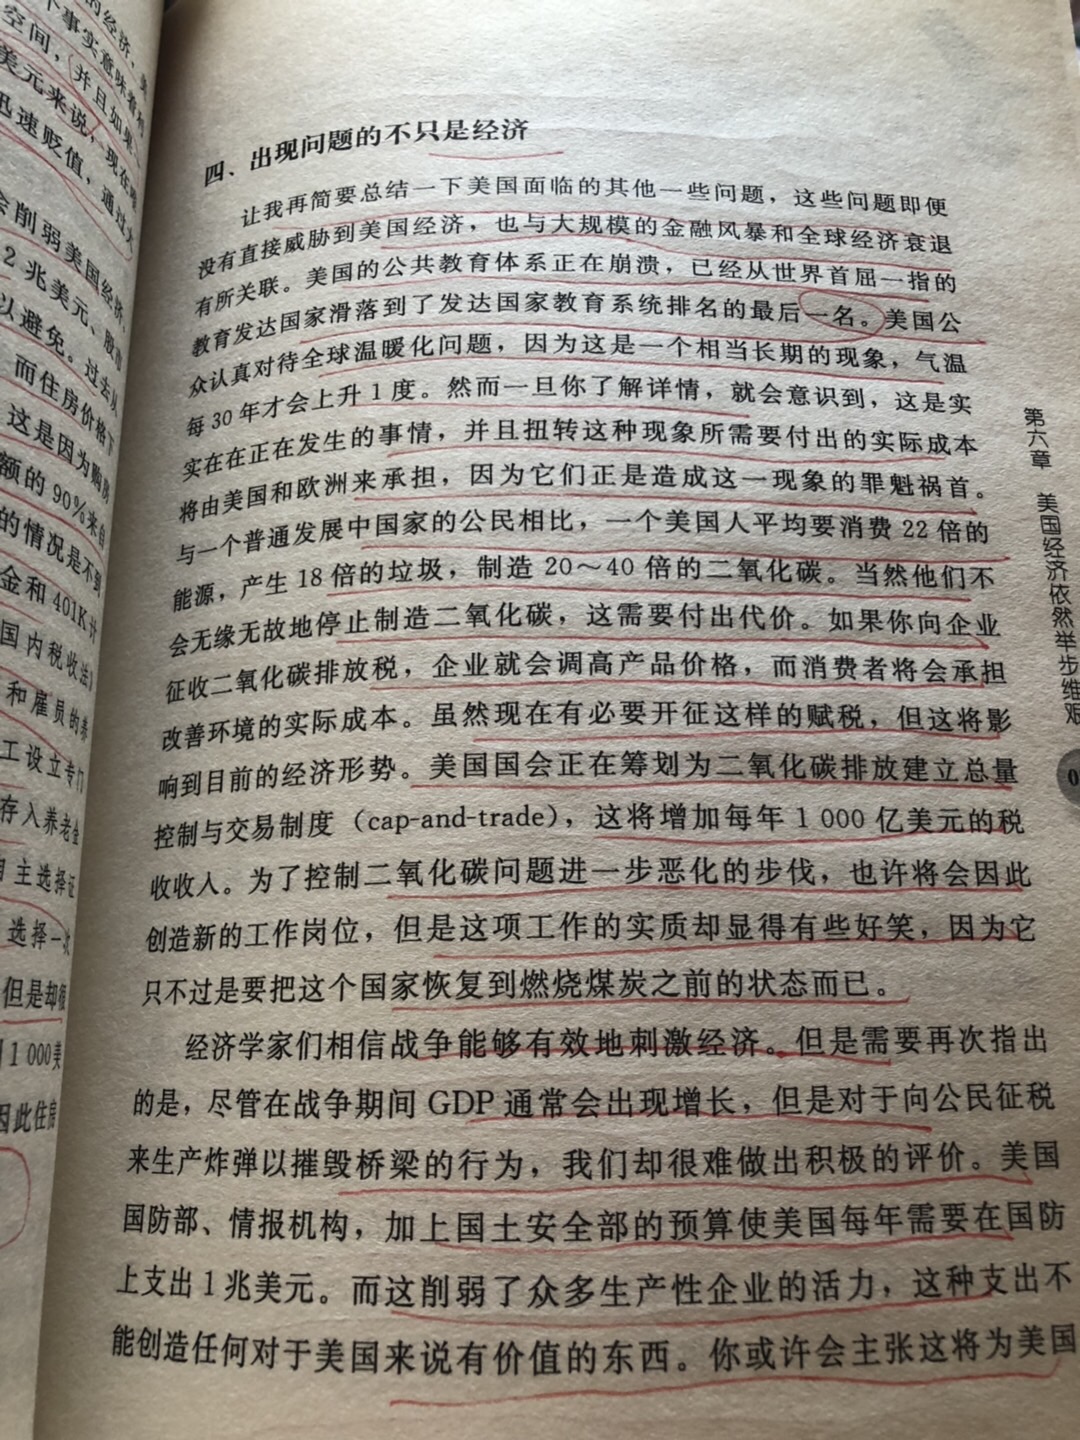 的经济
个事实意味着
空间，并且如果
美元来说，现在
迅速贬值，通过
会削弱美国经济，
2兆美元、股
以避免。过去从
而住房价格下
这是因为购房
额的90%来自
的情况是不到
金和401K计
国内税收法》
和雇员的养
工设立专门
存入养老金
自主选择证
选择一次
但是却很
1000美
因此住房
四、出现问题的不只是经济
让我再简要总结一下美国面临的其他一些问题，这些问题即便
没有直接威胁到美国经济，也与大规模的金融风暴和全球经济衰退
有所关联。美国的公共教育体系正在崩溃，已经从世界首屈一指的
教育发达国家滑落到了发达国家教育系统排名的最后一名。美国公
众认真对待全球温暖化问题，因为这是一个相当长期的现象，气温
每30年才会上升1度。然而一旦你了解详情，就会意识到，这是实
实在在正在发生的事情，并且扭转这种现象所需要付出的实际成本
将由美国和欧洲来承担，因为它们正是造成这一现象的罪魁祸首。
与一个普通发展中国家的公民相比，一个美国人平均要消费22倍的
能源，产生18倍的垃圾，制造20～40倍的二氧化碳。当然他们不
会无缘无故地停止制造二氧化碳，这需要付出代价。如果你向企业
征收二氧化碳排放税，企业就会调高产品价格，而消费者将会承担
改善环境的实际成本。虽然现在有必要开征这样的赋税，但这将影
响到目前的经济形势。美国国会正在筹划为二氧化碳排放建立总量
控制与交易制度（cap-and-trade），这将增加每年1 000亿美元的税
收收入。为了控制二氧化碳问题进一步恶化的步伐，也许将会因此
创造新的工作岗位，但是这项工作的实质却显得有些好笑，因为它
只不过是要把这个国家恢复到燃烧煤炭之前的状态而已。
经济学家们相信战争能够有效地刺激经济。但是需要再次指出
的是，尽管在战争期间GDP通常会出现增长，但是对于向公民征税
来生产炸弹以摧毁桥梁的行为，我们却很难做出积极的评价。美国
国防部、情报机构，加上国土安全部的预算使美国每年需要在国防
上支出1兆美元。而这削弱了众多生产性企业的活力，这种支出不
能创造任何对于美国来说有价值的东西。你或许会主张这将为美国
第六章 美国经济依然举步维艰
0